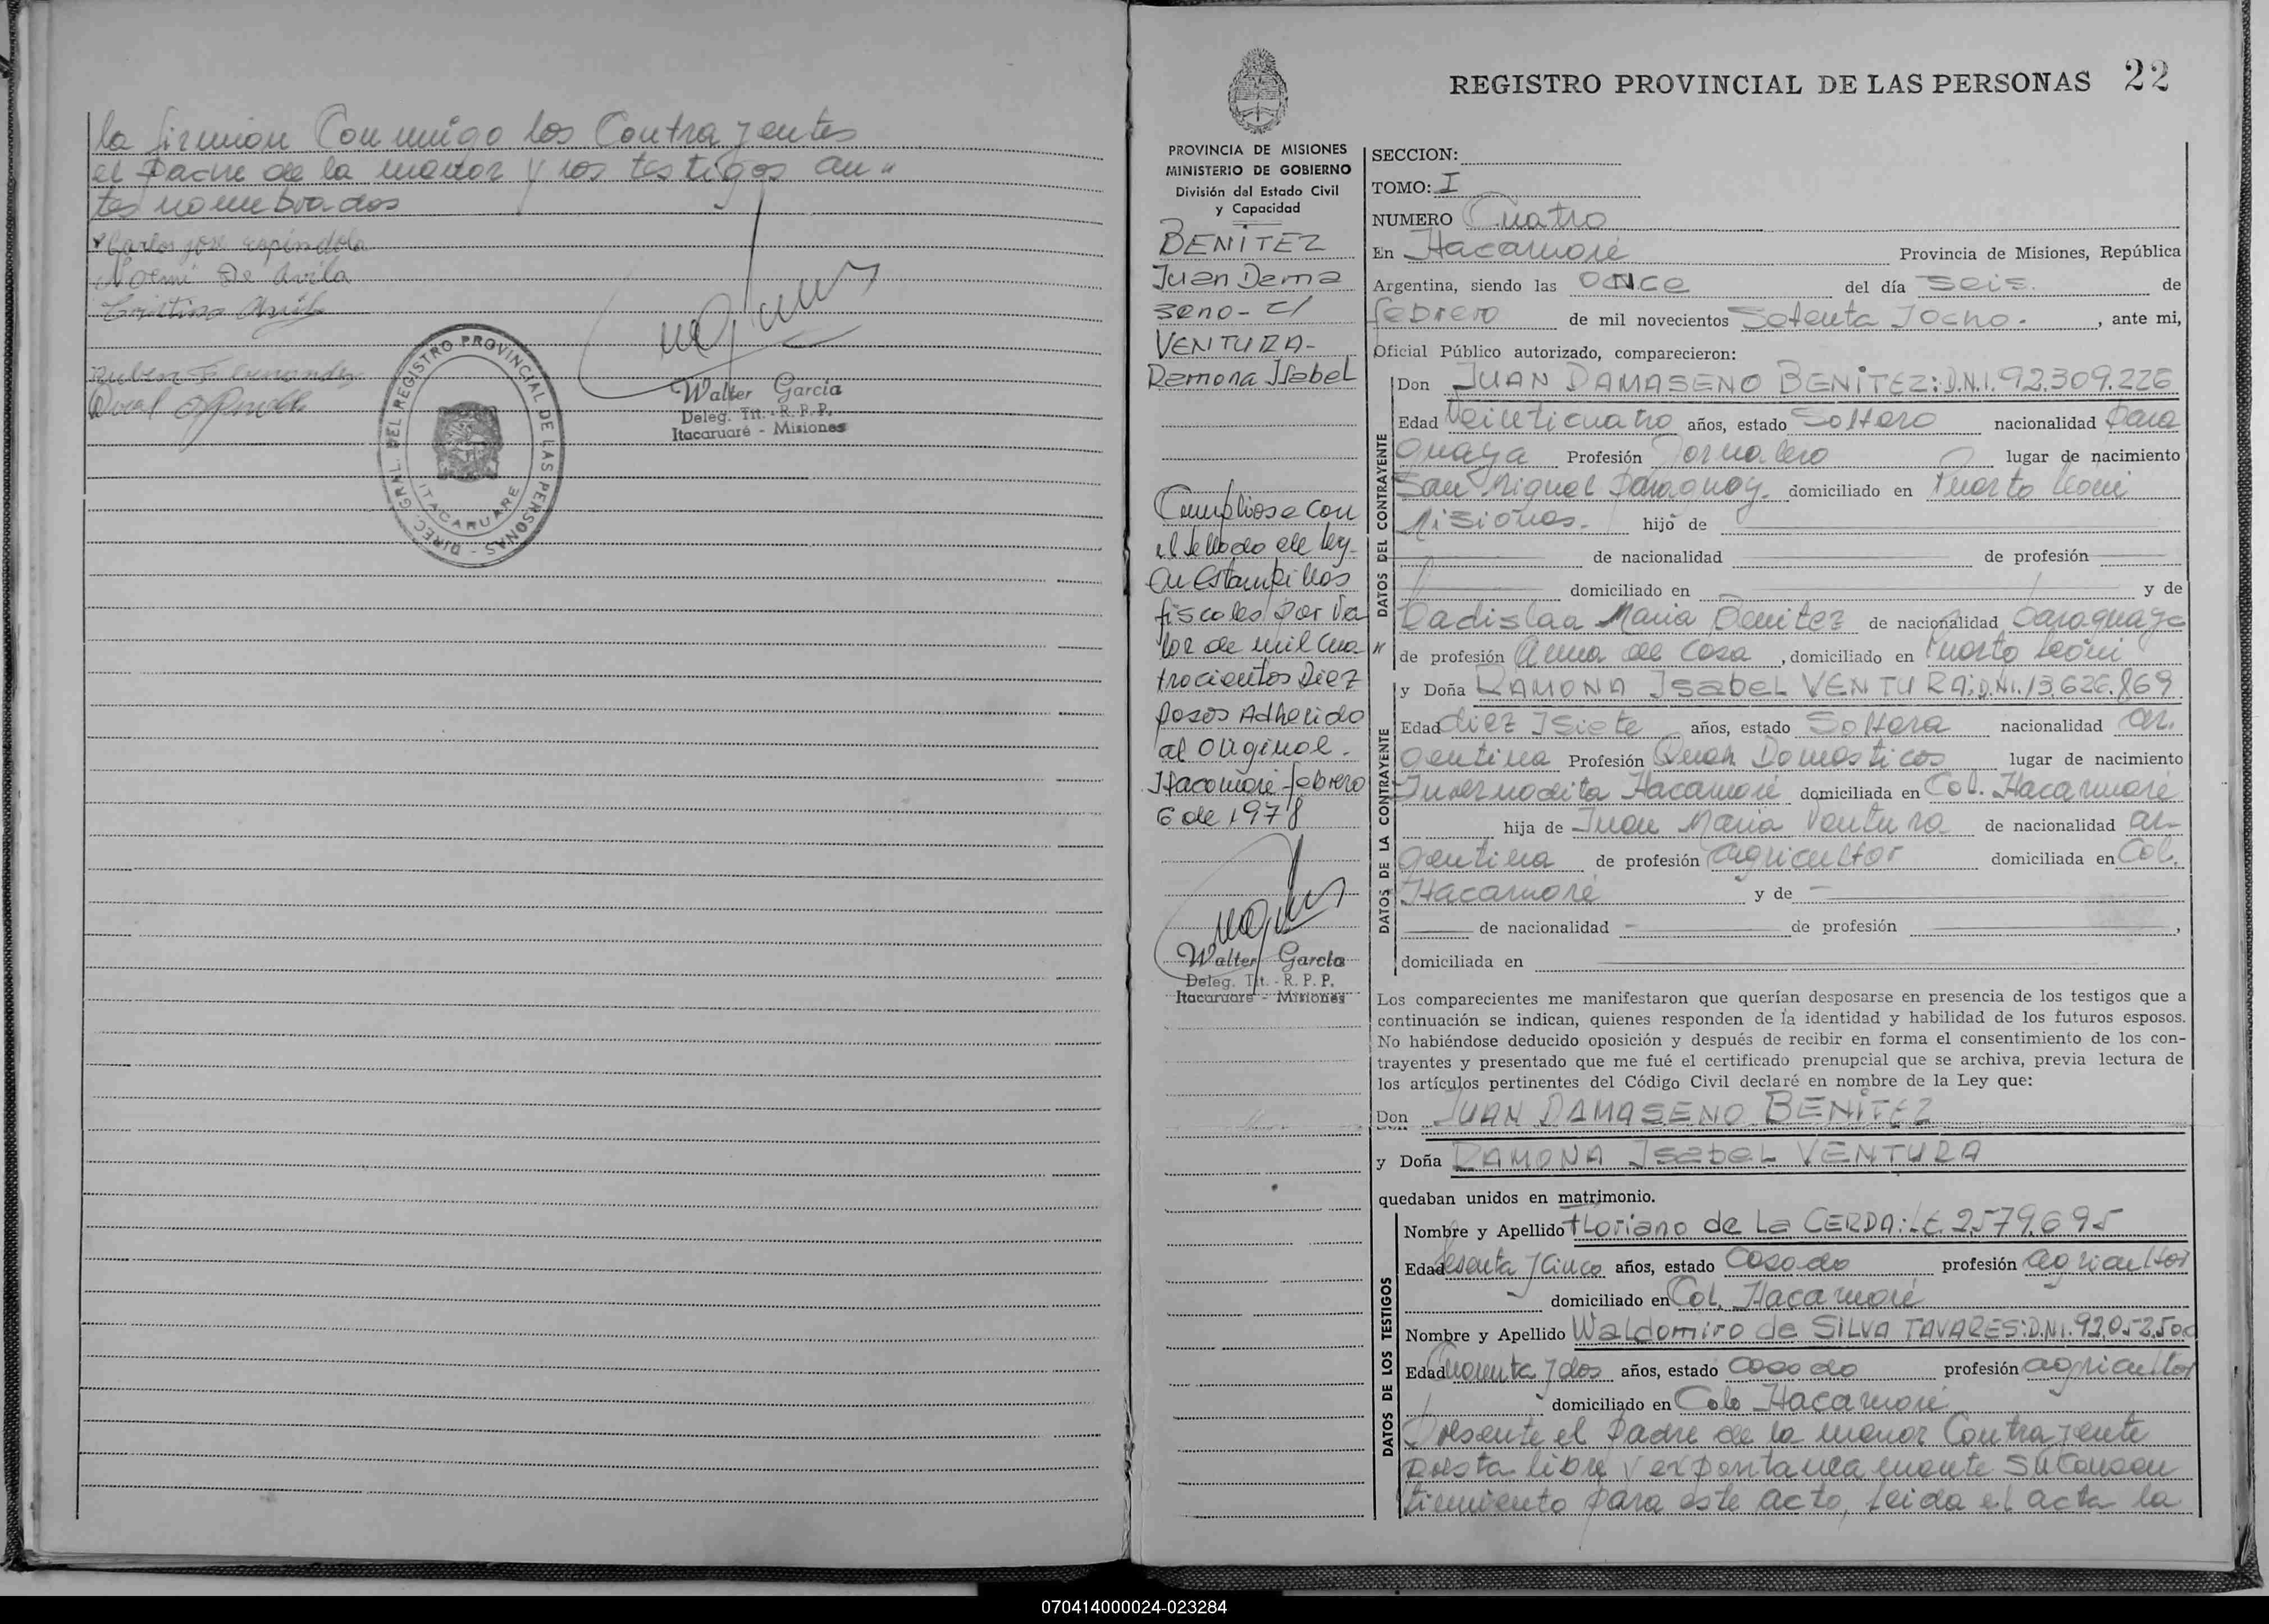 la firman Conmigo los Contrayentes
el Padre de la menor y los testigos an"
tes nombrados
Carlos José Espíndola
Noemi De Avila
Cristino
Ruben Fernandez
DIREC. GRAL. DEL REGISTRO PROVINCIAL DE LAS PERSONAS -
ITACARUARE
Walter García
Deleg. Tit. - R. P. P.
Itacaruaré - Misiones
REGISTRO PROVINCIAL DE LAS PERSONAS 22
PROVINCIA DE MISIONES
MINISTERIO DE GOBIERNO
División del Estado Civil
y Capacidad
BENITEZ
Juan Dama
seno - c/
VENTURA-
Ramona Isabel
Cumpliose con
el sellado de ley
en estampillas
fiscales por va
lor de mil cua "
trocientos Diez
pesos Adherido
al original.
Itacaruaré febrero
6 de 1978
Walter García
Deleg. Tit. - R. P. P.
Itacaruaré - Misiones
SECCION:
TOMO: I
NUMERO Cuatro
En Itacaruaré Provincia de Misiones, República
Argentina, siendo las ONCe del día seis. de
febrero de mil novecientos Setenta Iocho. , ante mi,
Oficial Público autorizado, comparecieron:
DATOS DEL CONTRAYENTE
Don JUAN DAMASENO BENITEZ: D.N.I. 92.309.226
Edad Veinticuatro años, estado Soltero nacionalidad Para
guaya Profesión Jornalero lugar de nacimiento
San Miguel Paraguay. domiciliado en Puerto Leoni
Misiones. hijo de
de nacionalidad de profesión
domiciliado en y de
Ladislaa Maria Benitez de nacionalidad paraguaya
de profesión Ama de Casa , domiciliado en Puerto Leoni
DATOS DE LA CONTRAYENTE
y Doña RAMONA Isabel VENTURA: D.NI. 13.626.869
Edad diez Isiete años, estado Soltera nacionalidad ar.
gentina Profesión Queh. Domesticos lugar de nacimiento
Invernadita Itacaruaré domiciliada en Col. Itacaruaré
hija de Juan Maria Ventura de nacionalidad ar-
gentina de profesión agricultor domiciliada en Col.
Itacaruaré y de -
de nacionalidad de profesión ,
domiciliada en
Los comparecientes me manifestaron que querían desposarse en presencia de los testigos que a
continuación se indican, quienes responden de la identidad y habilidad de los futuros esposos.
No habiéndose deducido oposición y después de recibir en forma el consentimiento de los con-
trayentes y presentado que me fué el certificado prenupcial que se archiva, previa lectura de
los artículos pertinentes del Código Civil declaré en nombre de la Ley que:
Don JUAN DAMASENO BENITEZ
y Doña RAMONA Isabel VENTURA
quedaban unidos en matrimonio.
DATOS DE LOS TESTIGOS
Nombre y Apellido Floriano de La CERDA: L.E. 2.579.695
Edad Sesenta Jcinco años, estado Casado profesión agricultor
domiciliado en Col. Itacaruaré
Nombre y Apellido Waldomiro de SILVA TAVARES: D.NI. 92.052.500
Edad Cuarenta Jdos años, estado casado profesión agricultor
domiciliado en Colo Itacaruaré
Presente el Padre de la menor Contrayente
presta libre y expontanea mente su Consen
timiento para este acto, leida el acta la
070414000024-023284